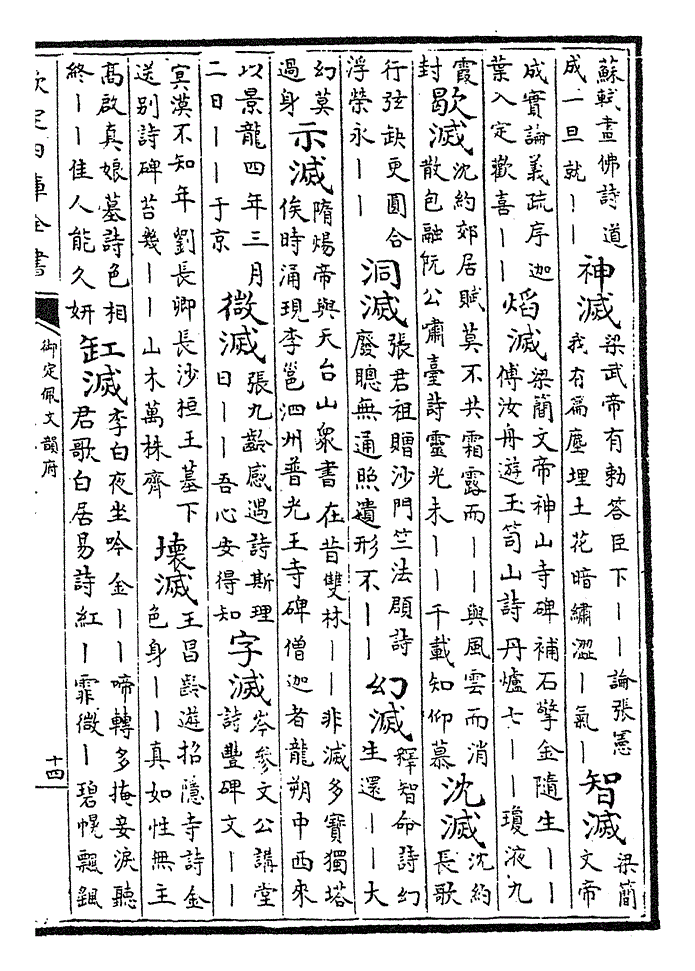 蘇軾畫佛詩道成一旦就丨丨 神滅 梁武帝有勅答臣下丨丨論張憲我有扁塵埋土花暗繡澀丨氣丨 智滅 梁簡文帝
成實論義疏序迦葉入定歡喜丨丨 熖滅 梁簡文帝神山寺碑補石擎金隨生丨丨傅汝舟游玉笥山詩丹爐七丨丨瓊液九
霞封 歇滅 沈約郊居賦莫不共霜露而丨丨與風雲而消散包融阮公嘯臺詩靈光未丨丨千載知仰慕 沈滅 沈約長歌
行弦缺更圓合浮榮永丨丨 洞滅 張君祖贈沙門竺法頵詩廢聰無通照遺形不丨丨 幻滅 釋智命詩幻生還丨丨大
幻莫過身 示滅 隋煬帝與天台山衆書在昔雙林丨丨非滅多寶獨塔俟時涌現李邕泗州普光王寺碑僧迦者龍朔中西來
以景龍四年三月二日丨丨于京 微滅 張九齡感遇詩斯理日丨丨吾心安得知 字滅 岑參文公講堂詩豐碑文丨丨
冥漠不知年劉長卿長沙桓王墓下送别詩碑苔幾丨丨山木萬株齊 壊滅 王昌齡遊招隱寺詩金色身丨丨真如性無主
髙啟真娘墓詩色相終丨丨佳人能久妍 缸滅 李白夜坐吟金丨丨啼轉多掩妾淚聽君歌白居易詩紅丨霏微丨碧幌飄颻
欽定四庫全書
御定佩文韻府
十四